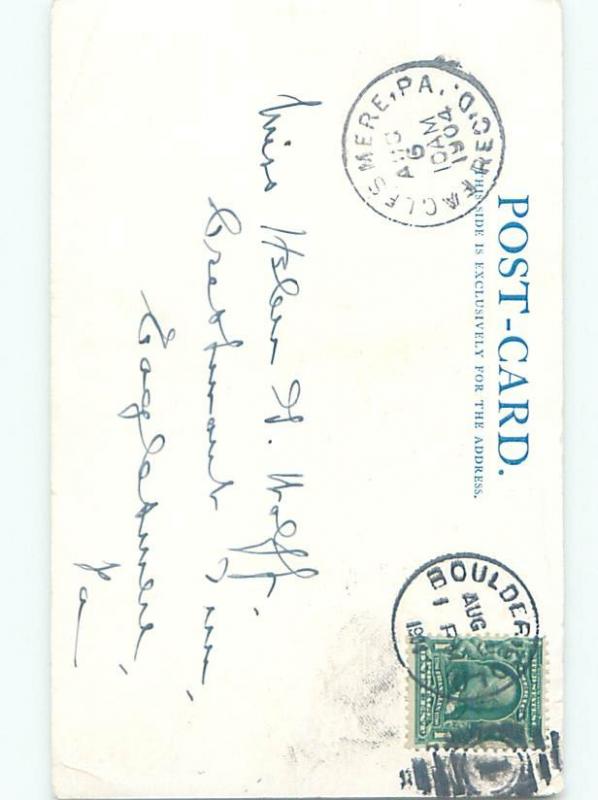 POST-CARD.
THIS SIDE IS EXCLUSIVELY FOR THE ADDRESS.
EAGLES MERE, PA. REC'D.
AUG
6
10 AM
1904
BOULDER
AUG
1 P
19
Miss Helen H. Wolff,
Crestmont Inn,
Eaglesmere,
Pa